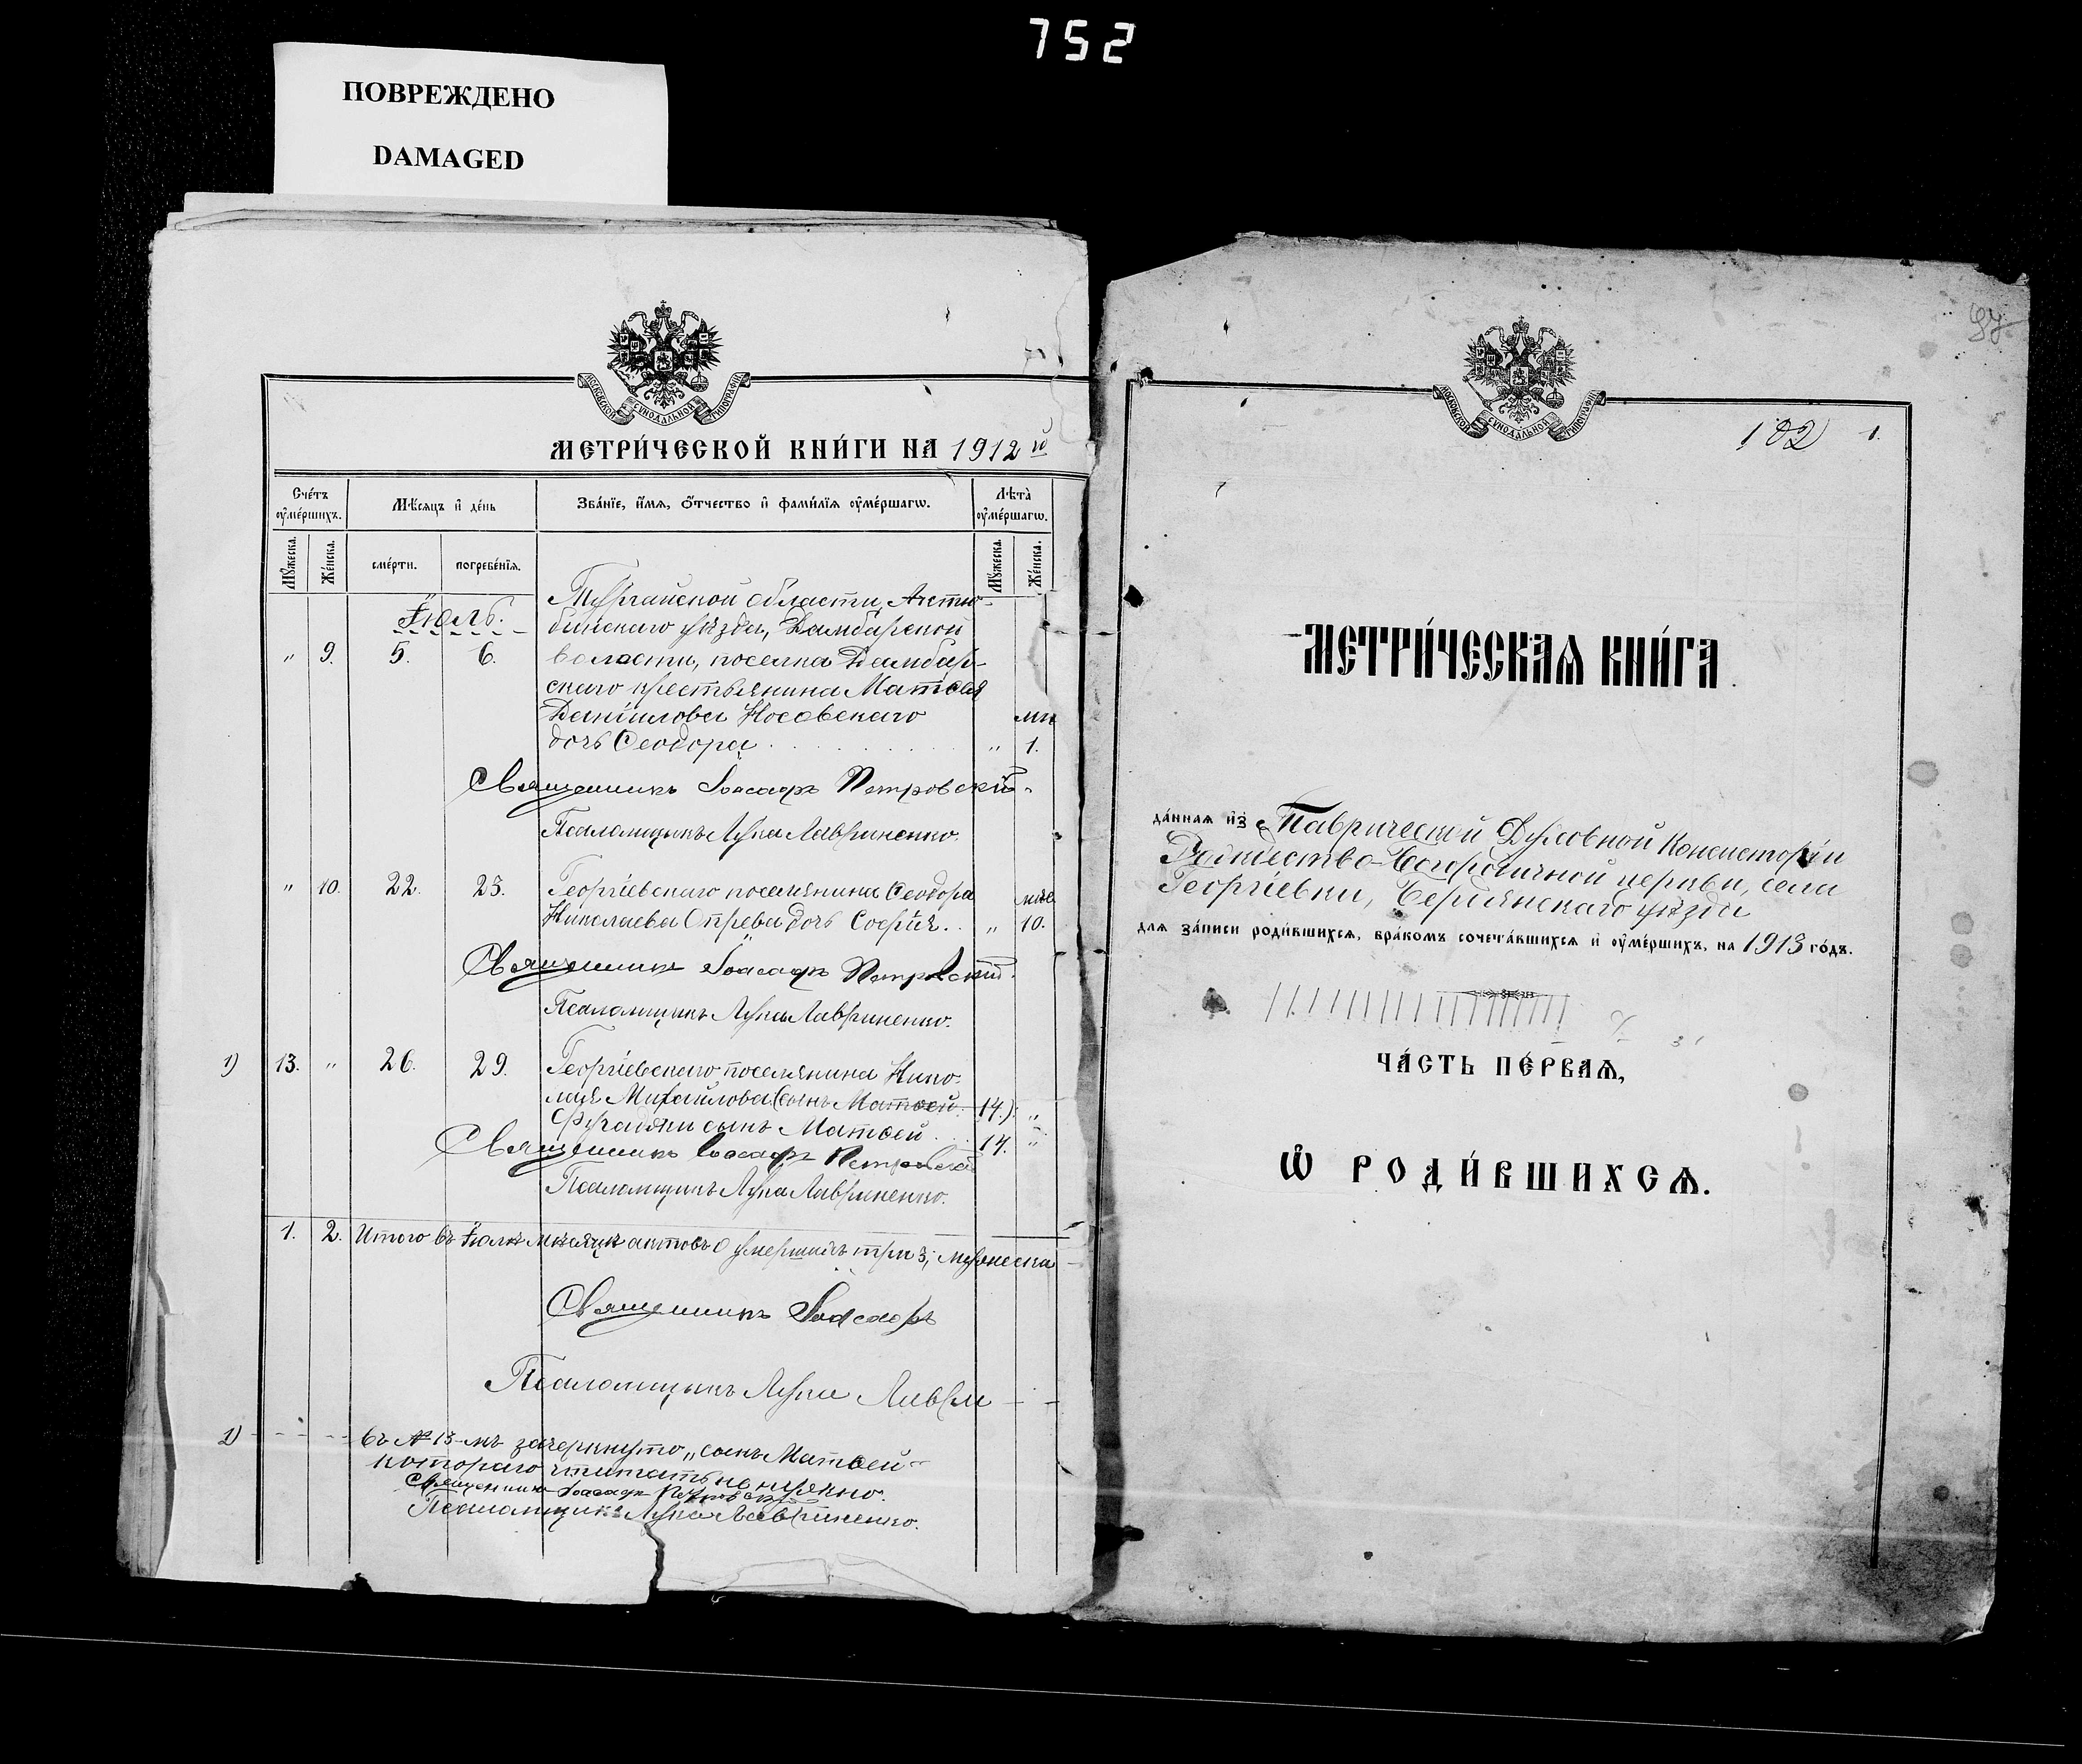 752
ПОВРЕЖДЕНО
DAMAGED
МОСКОВСКОЙ СѴНОДАЛЬНОЙ ТИПОГРАФІИ
МЕТРИ́ЧЕСКОЙ КНИ́ГИ НА 1912 й
Сче́тъ ᲂу҆ме́ршихъ.
Мѣ́сяцъ и҆ де́нь
Зва́нїе, и҆́мѧ, ѻ҆́тчество и҆ фами́лїѧ ᲂу҆ме́ршагѡ.
Лѣта̀ ᲂу҆ме́ршагѡ.
Мꙋ́жеска.
Же́нска.
сме́рти.
погребе́нїѧ.
Мꙋ́жеска.
Же́нска.
Іюль.
Тургайской области, Актю-
бинскаго уѣзда, Джамбарской
" 9. 5. 6. волости, поселка Джамбар-
скаго крестьянина Матѳея
Данїилова Носовскаго мц
дочь Ѳеодора " 1.
Священникъ Іоасафъ Петровскій
Псаломщикъ Лука Лавриненко.
" 10. 22. 23. Георгіевскаго поселянина Ѳеодора мѣс
Николаева Опрева дочь Софія. " 10.
Священникъ Іоасафъ Петровскій
Псаломщикъ Лука Лавриненко.
1) 13. " 26. 29. Георгіевскаго поселянина Нико-
лая Михайлова (сынъ Матѳей. 14.): "
сынъ Матѳей 14. "
Священникъ Іоасафъ Петровскій
Псаломщикъ Лука Лавриненко.
1. 2. Итого въ Іюлѣ мѣсяцѣ актовъ о умершихъ три 3; мужеска
Священникъ Іоасафъ
Псаломщикъ Лука Лаври
1) въ № 13-мъ зачеркнуто „сынъ Матѳей"
котораго читать не нужно.
Священникъ Іоасафъ Петровскій
Псаломщикъ Лука Лавриненко.
МОСКОВСКОЙ СѴНОДАЛЬНОЙ ТИПОГРАФІИ
102 1.
МЕТРИ́ЧЕСКАѦ КНИ́ГА
да́ннаѧ и҆з̾ Таврической Духовной Консисторіи
Рождество-Богородичной церкви, села
Георгіевки, Бердянскаго уѣзда
для за́писи роди́вшихсѧ, бра́комъ сочета́вшихсѧ и҆ ᲂу҆ме́ршихъ, на 1913 го́дъ.
ЧА́СТЬ ПЕ́РВАѦ,
Ѡ҆ РОДИ́ВШИХСѦ.